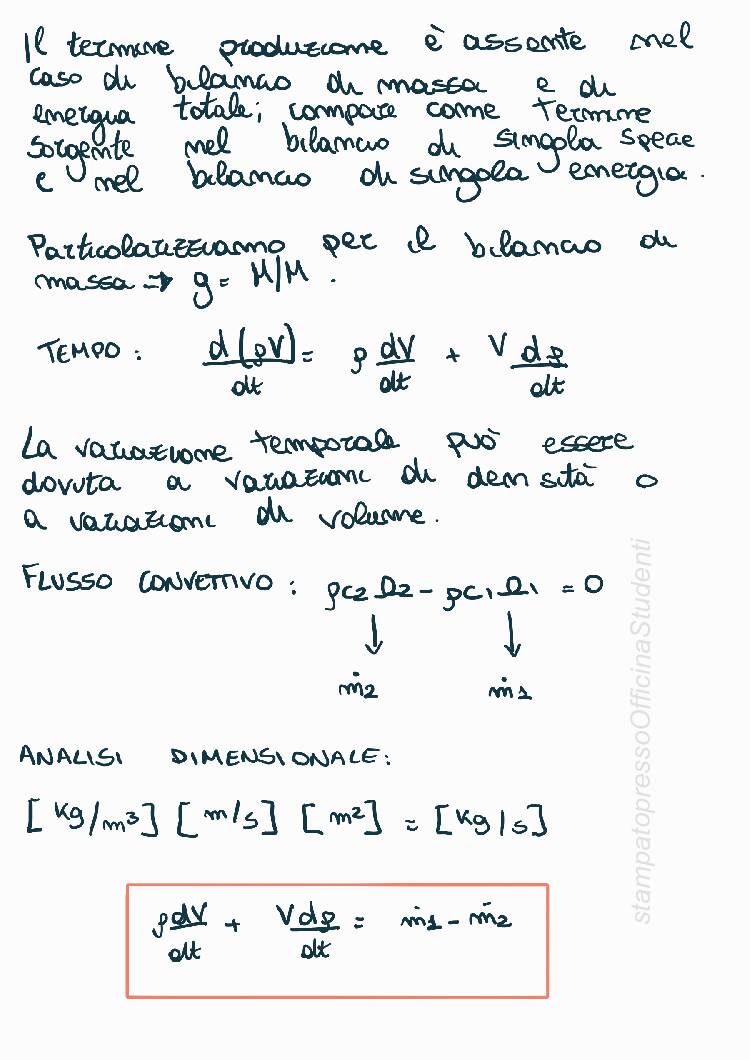 Il termine produzione è assente nel
caso di bilancio di massa e di
energia totale; compare come termine
sorgente nel bilancio di singola specie
e nel bilancio di singola energia.
Particolarizziamo per il bilancio di
massa → g = M/M.
TEMPO: d(ρV)/dt = ρ dV/dt + V dρ/dt
La variazione temporale può essere
dovuta a variazioni di densità o
a variazioni di volume.
FLUSSO CONVETTIVO: ρc₂Ω₂ - ρc₁Ω₁ = 0
↓ ↓
ṁ₂ ṁ₁
ANALISI DIMENSIONALE:
[kg/m³] [m/s] [m²] = [kg/s]
ρ dV/dt + V dρ/dt = ṁ₁ - ṁ₂
stampatopressoOfficinaStudenti